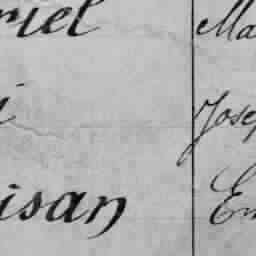 riel Ma
i Josep
isan Em